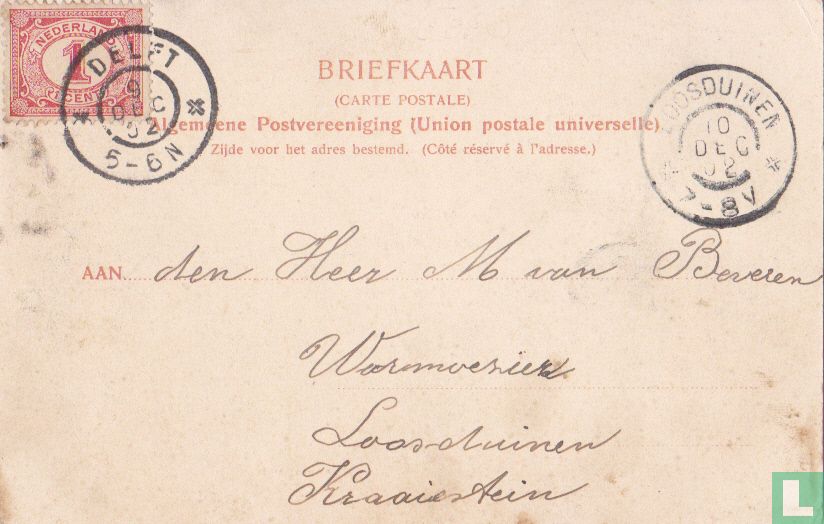 NEDERLAND
1
CENT
DELFT
9
DEC
02
5-6N
BRIEFKAART
(CARTE POSTALE)
Algemeene Postvereeniging (Union postale universelle)
Zijde voor het adres bestemd. (Côté réservé à l'adresse.)
LOOSDUINEN
10
DEC
02
7-8V
AAN den Heer M van Beveren
Warmoezier
Loosduinen
Kraaiestein
L